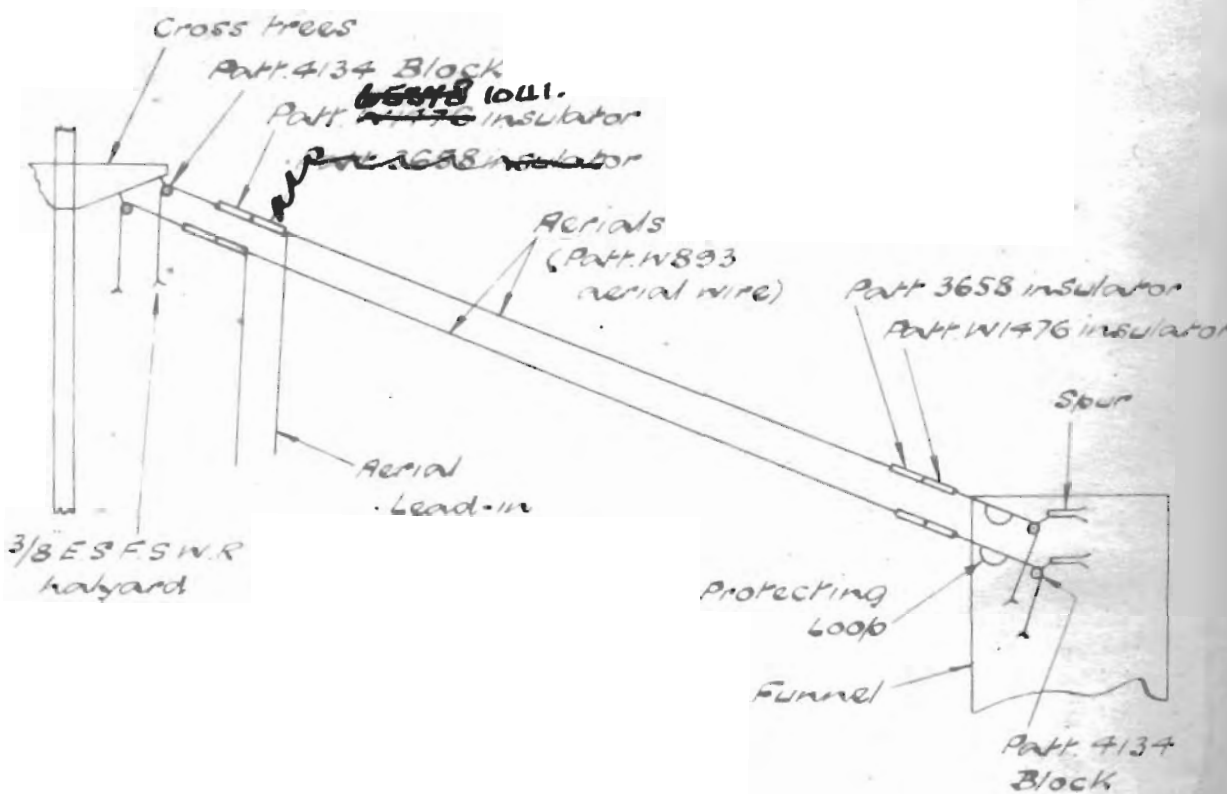 Cross trees
Patt. 4134 Block
10411.
Patt. W1476 insulator
Patt. 3658 insulator
Aerials
(Patt. W893
aerial wire)
Patt 3658 insulator
Patt. W1476 insulator
Spur
Aerial
Lead-in
3/8 E.S.F.S.W.R
halyard
Protecting
Loop
Funnel
Patt. 4134
Block